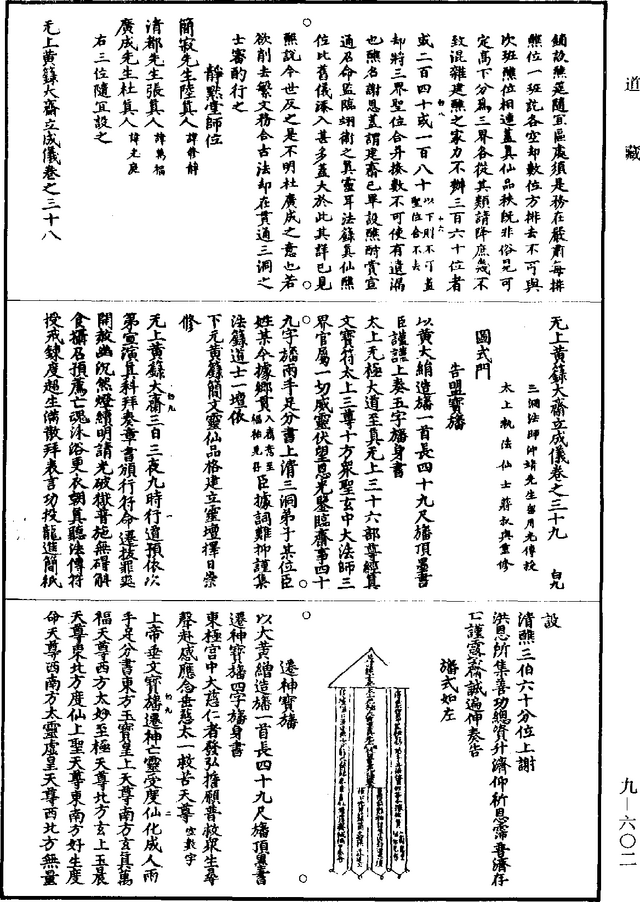 道藏
鋪設醮筵隨冝區處須是務在嚴肅每排
醮位一班訖各空却數位方排去不可與
次班醮位相連蓋真仙品秩旣非俗見可
定高下分爲三界各從其類請降庶幾不
致混雜建醮之家力不辦三百六十位者
或二百四十或一百八十以下則不可蓋聖位合不去
却將三界聖位合并接數不可使有遺漏
也醮名謝恩蓋謂建齋已畢設醮酧賞宣
通召命監臨翊衛之真靈耳法籙真仙醮
位比舊儀添入甚多蓋大於此其詳已見
醮說今世反之是不明杜廣成之意也若
欲削去繁文務合古法却在貫通三洞之
士審酌行之
靜默堂師位
簡寂先生陸真人諱修靜
清都先生張真人諱萬福
廣成先生杜真人諱光庭
右三位隨冝設之
无上黄籙大齋立成儀卷之三十八
无上黄籙大齋立成儀卷之三十九 白九
三洞法師冲靖先生留用光傳授
太上執法仙士蔣叔輿重修
圖式門
告盟寳旛
以黄大絹造旛一首長四十九尺旛頂墨書
臣謹謹上奏五字旛身書
太上无極大道至真无上三十六部尊經真
文寳符太上三尊十方衆聖玄中大法師三
界官屬一切威靈伏望恩光鑒臨齋事四十
九字旛兩手足分書上清三洞弟子某位臣
姓某今據鄉貫入齋意至福祐先存臣據詞難抑謹集
法籙道士一壇依
下元黄籙簡文靈仙品格建立靈壇擇日崇
修
无上黄籙大齋三日三夜九時行道預依以
第宣演真科拜奏章書頒行符命遷拔罪爽
開赦幽沉然燈續明請光破獄普施無礙斛
食攝召預薦亡魂沐浴更衣朝真聽法傳符
授戒鍊度超生滿散拜表言功投龍進簡秪
設
清醮三伯六十分位上謝
洪恩所集善功總資升濟仰祈恩霈普濟存
亡謹露齋誠遍伸奏告
旛式如左
遷神寳旛
以大黄繒造旛一首長四十九尺旛頂墨書
遷神寳旛四字旛身書
東極宫中大慈仁者發弘擔願普救衆生尋
聲赴感應念垂慈太一救苦天尊空數字
上帝垂文寳旛遷神亡靈受度仙化成人兩
手足分書東方玉寳皇上天尊南方玄真萬
福天尊西方太妙至極天尊北方玄上玉晨
天尊東北方度仙上聖天尊東南方好生度
命天尊西南方太靈虛皇天尊西北方無量
九—六〇二